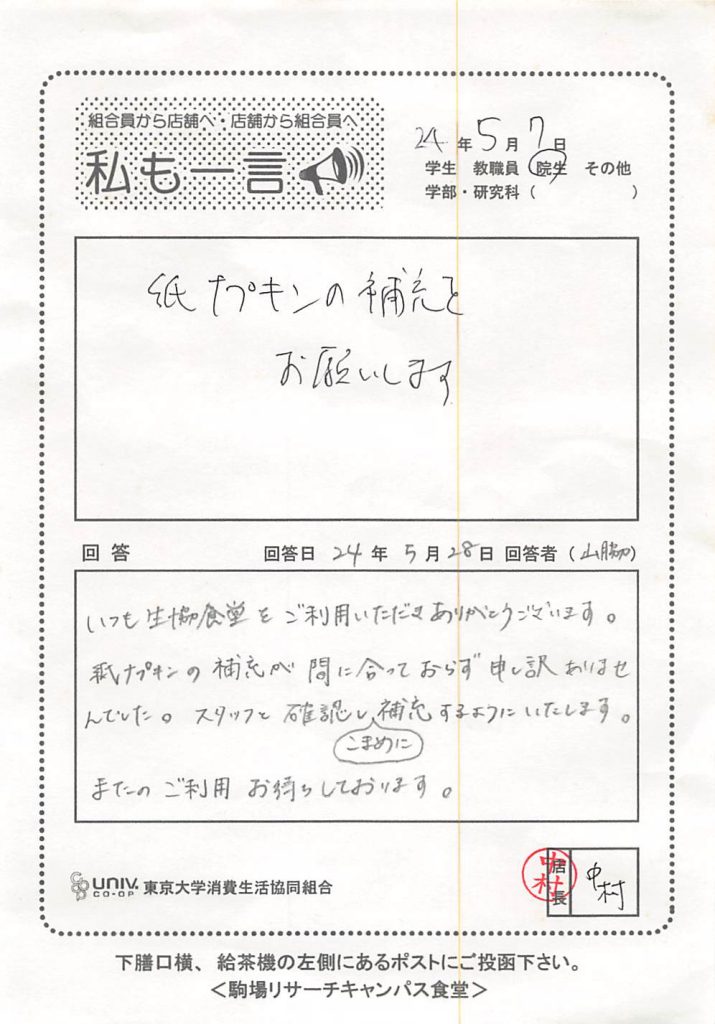 組合員から店舗へ・店舗から組合員へ
私も一言
24年5月7日
学生 教職員 院生 その他
学部・研究科（ ）
紙ナプキンの補充を
お願いします
回答 回答日 24年5月28日 回答者（山脇）
いつも生協食堂をご利用いただきありがとうございます。
紙ナプキンの補充が間に合っておらず申し訳ありませ
んでした。スタッフと確認し、補充するようにいたします。
こまめに
またのご利用お待ちしております。
UNIV. CO-OP 東京大学消費生活協同組合
中村
店長 中村
下膳口横、給茶機の左側にあるポストにご投函下さい。
＜駒場リサーチキャンパス食堂＞